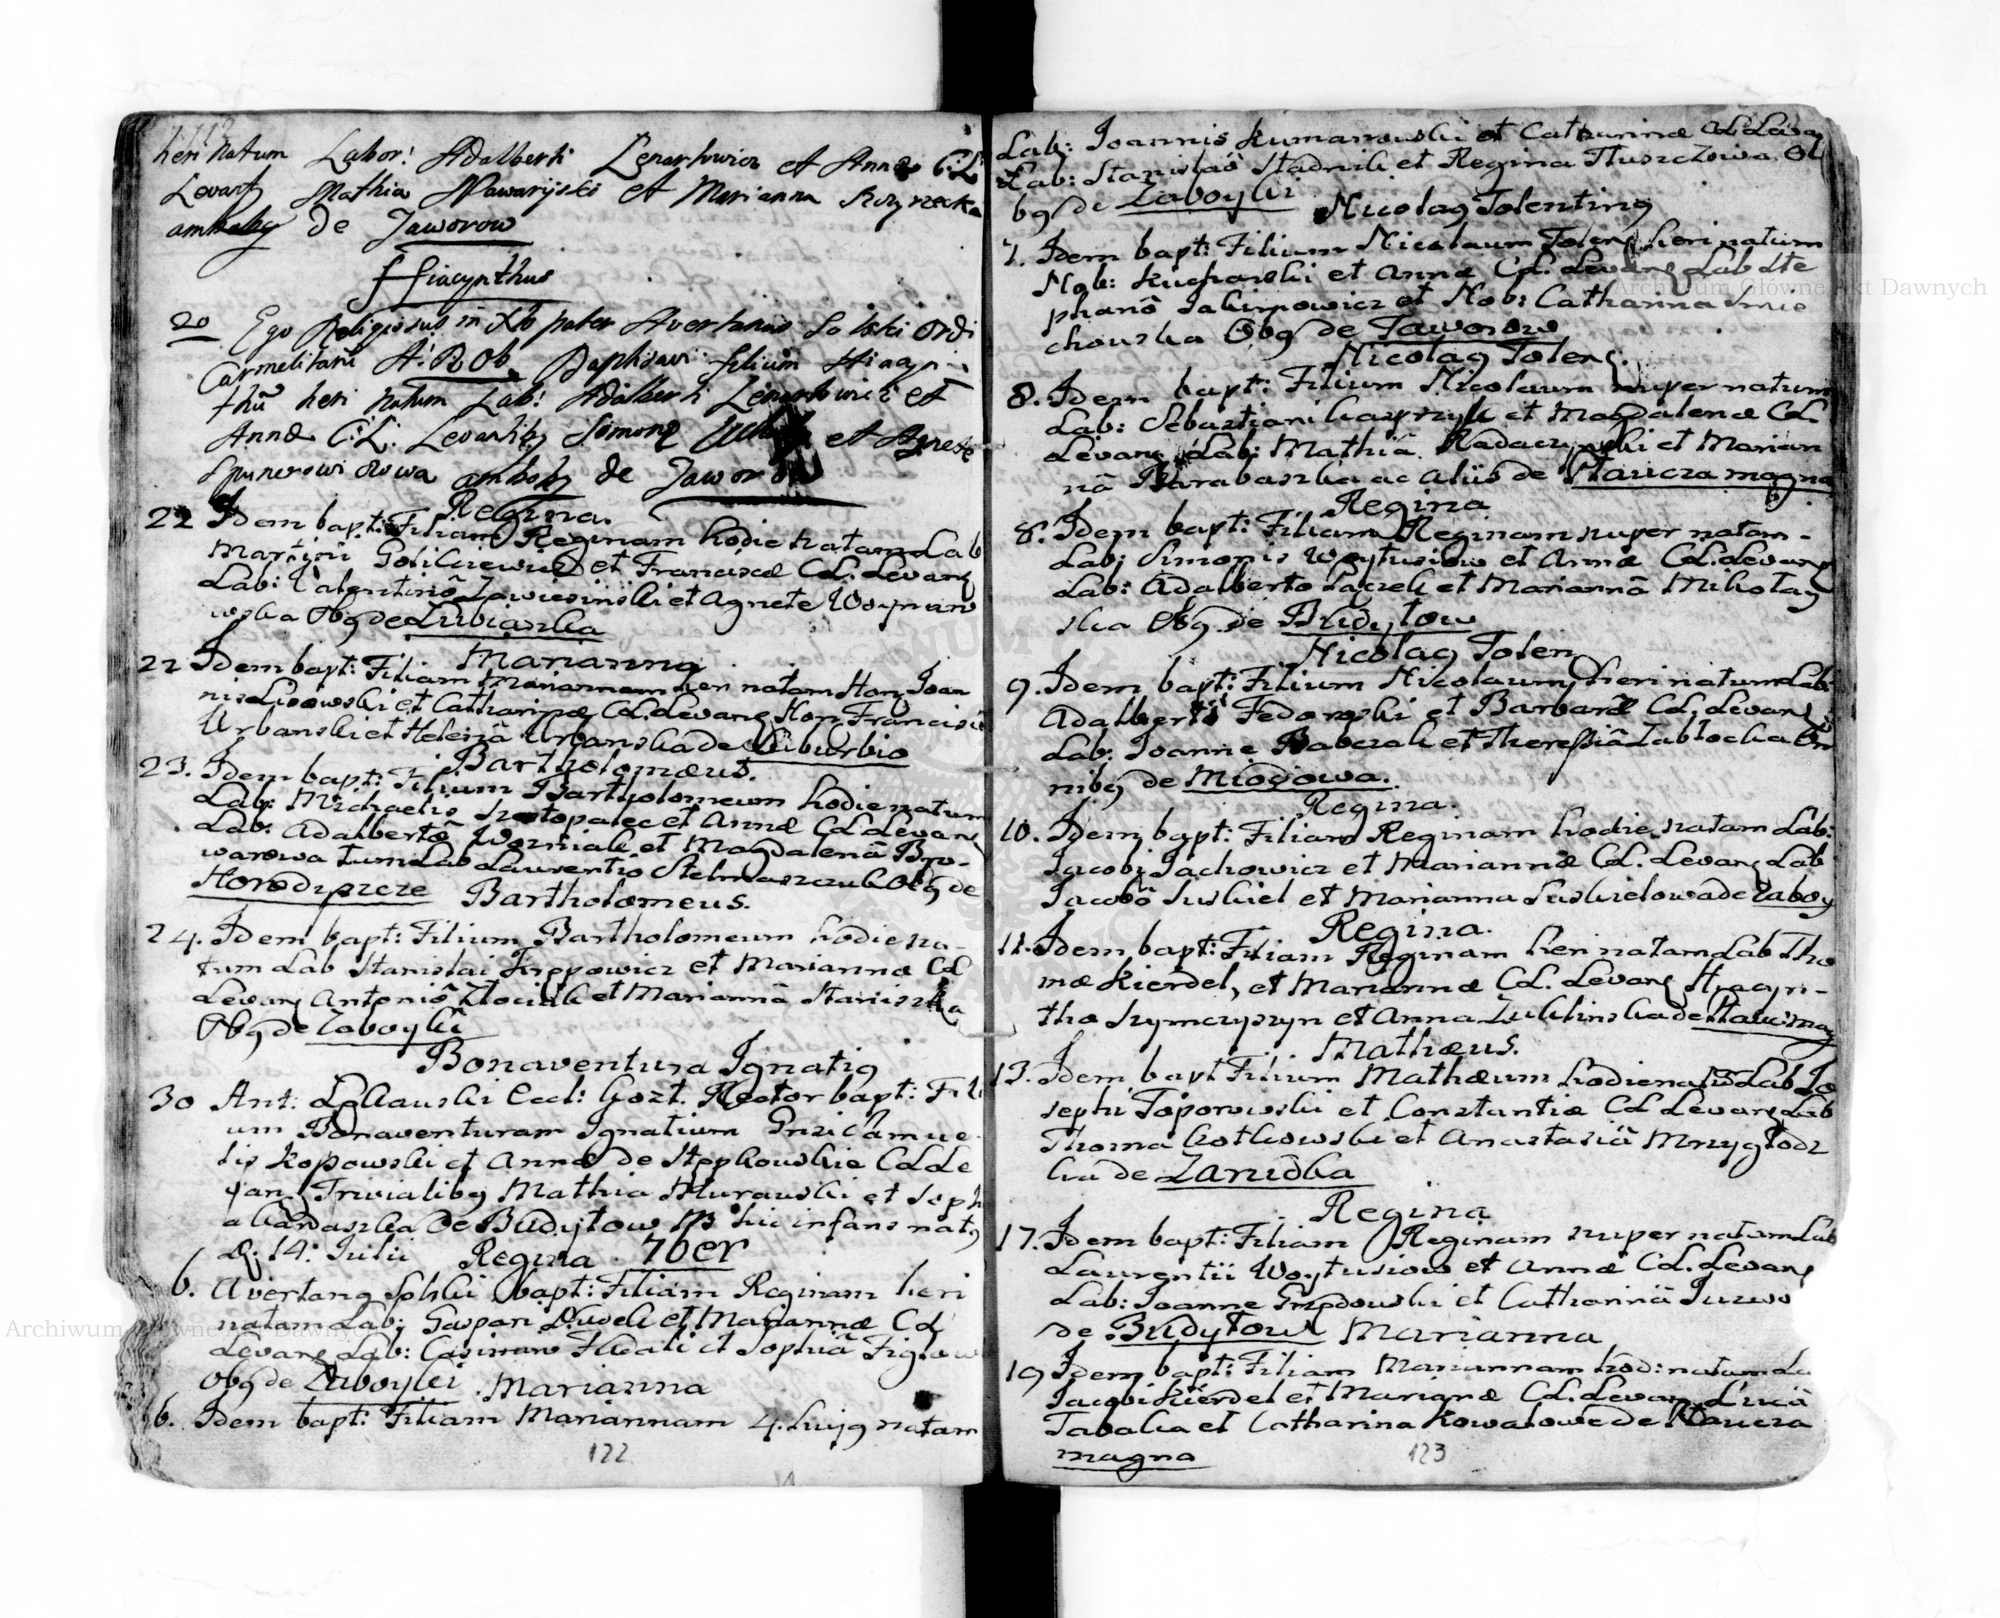 heri natum Labor: Adalberti Lenartowicz et Annæ C: L:
Levant Mathia Nawaryjski et Marianna
ambobus de Jaworow
Hiacynthus
20 Ego Religiosus in Xto pater Avertanus Solski Ordi
Carmelitarū A: R: Ob. Baptisavi filium Hiacyn-
thū heri natum Lab: Adalberti Lenartowicz et
Annæ C: L: Levantibȝ Simone et Agnete
ambobȝ de Jaworow
Regina.
22 Idem bapt: Filiam Reginam hodie natam Lab
Martini Goliczewicz et Franciscæ C.L. Levanȝ
Lab: Valentinō Zawiesinski et Agnete
wska Obȝ de Lubiaszka
Marianna
22 Idem bapt: Filiam Mariannam heri natam Hon: Joan
nis Lisowski et Catharinæ C.L. Levanȝ Hon: Francisco
Urbanski et Helenā Urbanska de Suburbio
Bartholomæus.
23. Idem bapt: Filium Bartholomeum hodie natum
Lab: Michaelis et Annæ C.L. Levanȝ
Lab: Adalbertō Wozniak et Magdalenā Bro-
warowa tum Lab Laurentio Stelmaszczuk Obȝ de
Horodyszcze Bartholomeus.
24. Idem bapt: Filium Bartholomeum hodie na-
tum Lab Stanislai Kreppowicz et Mariannæ C.L.
Levanȝ Antoniō et Mariannā
Obȝ de Zaboyki
Bonaventura Ignatiȝ
30 Ant: Eccl: Gozt. Rector bapt: Fili
um Bonaventuram Ignatium Gnri Samue
lis Kopowski et Annæ de Stepkowskie C.L. Le
vanȝ Trivialibȝ Mathia Murawski et Soph
a de Budytow NB hic infans natȝ
D. 14: Julii Regina 7ber
6. Avertanȝ Solski bapt: Filiam Reginam heri
natam Lab: Gaspari Dudek et Mariannæ C.L.
Levanȝ Lab: Casimiro et Sophiā
Obȝ de Zaboyki Marianna
6. Idem bapt: Filiam Mariannam 4. hujȝ natam
122
Lab: Joannis Kumanowski et Catharinæ C.L. Levanȝ
Lab: Stanislaō Stadnik et Regina Tluszczowa O
bȝ de Zaboyki Nicolaȝ Tolentinȝ
7. Idem bapt: Filium Nicolaum Tolenȝ heri natum
Nob: Kuchorski et Annæ C.L. Levanȝ Lab Ste
phanō Jakimowicz et Nob: Catharinna Smie
chowska Obȝ de Jaworow
Nicolaȝ Tolenȝ.
8. Idem bapt: Filium Nicolaum nuper natum
Lab: Sebastiani Kasprzyk et Magdalenæ C.L.
Levanȝ Lab: Mathiā et Marian
nā Barabaszka ac aliis de Plaucza magna
Regina
8. Idem bapt: Filiam Reginam nuper natam -
Lab: Simonis Woytusiow et Annæ C.L. Levanȝ
Lab: Adalberto et Mariannā Mikolay
ska Obȝ de Budytow
Nicolaȝ Tolen
9. Idem bapt: Filium Nicolaum heri natum Lab:
Adalberti Fedorski et Barbaræ C.L. Levanȝ
Lab: Joanne Babczak et Theressiā Zablocka Om
nibȝ de Miodowa.
Regina.
10. Idem bapt: Filiam Reginam hodie natam Lab:
Jacobi Jachowicz et Mariannæ C.L. Levanȝ Lab
Jacobō Suskiel et Marianna Suskielowa de Zaboy
Regina.
11. Idem bapt: Filiam Reginam heri natam Lab Tho
mæ Kierdel, et Mariannæ C.L. Levanȝ Hyacyn-
tho Szymczyszyn et Anna de Plaucz mag
Mathæus.
13. Idem bapt Filium Mathæum hodie natum Lab Jo
sephi Toporowski et Constantiæ C.L. Levanȝ Lab
Thoma Kotkowski et Anastasiā Mrzyglodz
ka de Zarudka
Regina
17. Idem bapt: Filiam Reginam nuper natam Lab
Laurentii Woytusiow et Annæ C.L. Levanȝ
Lab: Joanne et Catharinā
de Budytow Marianna
19 Idem bapt: Filiam Mariannam hod: natam La
Kierdel et Marianæ C.L. Levanȝ Lucā
et Catharina Kowalowe de Plaucza
magna
123
Archiwum Główne Akt Dawnych
Archiwum Główne Akt Dawnych